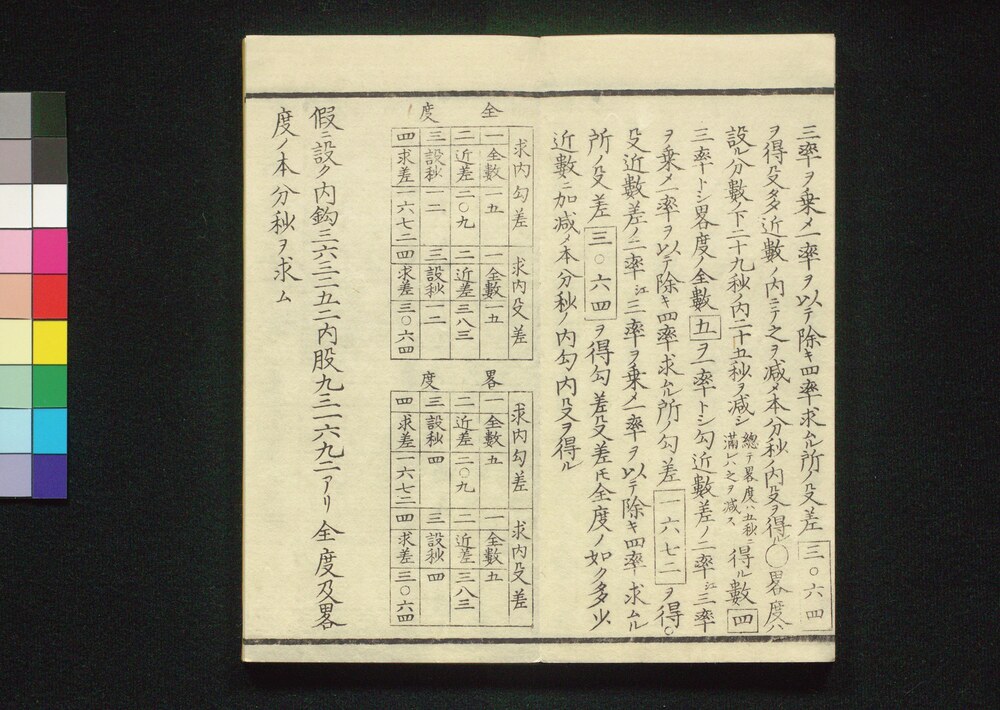 三率ヲ乗メ一率ヲ以テ除キ四率求ムル所ノ殳差三〇六四
ヲ得殳多近數ノ内ニテ之ヲ減メ本分秒ノ内殳ヲ得ル〇畧度ハ
設ル分數ノ下二十九秒ノ内二十五秒ヲ減シ總テ畧度ハ五秒ニ滿レハ之ヲ減ス得ル數四
三率トシ畧度ノ全數五ヲ一率トシ勾近數差ノ二率江三率
ヲ乗メ一率ヲ以テ除キ四率求ムル所ノ勾差一六七二ヲ得。
殳近數差ノ二率江三率ヲ乗メ一率ヲ以テ除キ四率求ムル
所ノ殳差三〇六四ヲ得勾差殳差氏全度ノ如ク多少
近數ニ加減メ本分秒ノ内勾内殳ヲ得ル
全度
求内勾差
一全數一五
二近差二〇九
三設秒一二
四求差一六七二
求内殳差
一全數一五
二近差三八三
三設秒一二
四求差三〇六四
畧度
求内勾差
一全數五
二近差二〇九
三設秒四
四求差一六七二
求内殳差
一全數五
二近差三八三
三設秒四
四求差三〇六四
假ニ設ク内鈎三六三二五二内股九三一六九二アリ全度及畧
度ノ本分秒ヲ求ム